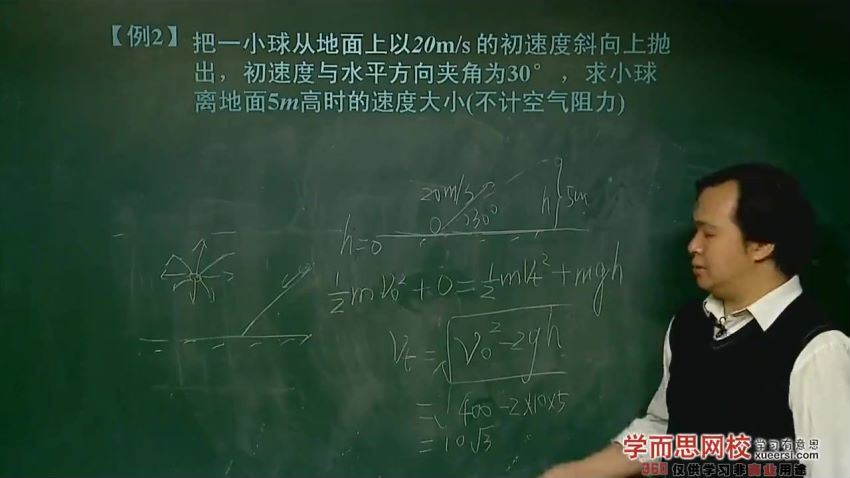 【例2】把一小球从地面上以20m/s的初速度斜向上抛
出，初速度与水平方向夹角为30°，求小球
离地面5m高时的速度大小(不计空气阻力)
20m/s
0 30°
h 5m
h=0
½mv₀²+0=½mvₜ²+mgh
vₜ=√(v₀²-2gh)
=√(400-2×10×5)
=10√3
学而思网校 学习有意思
xueersi.com
360 仅供学习非商业用途